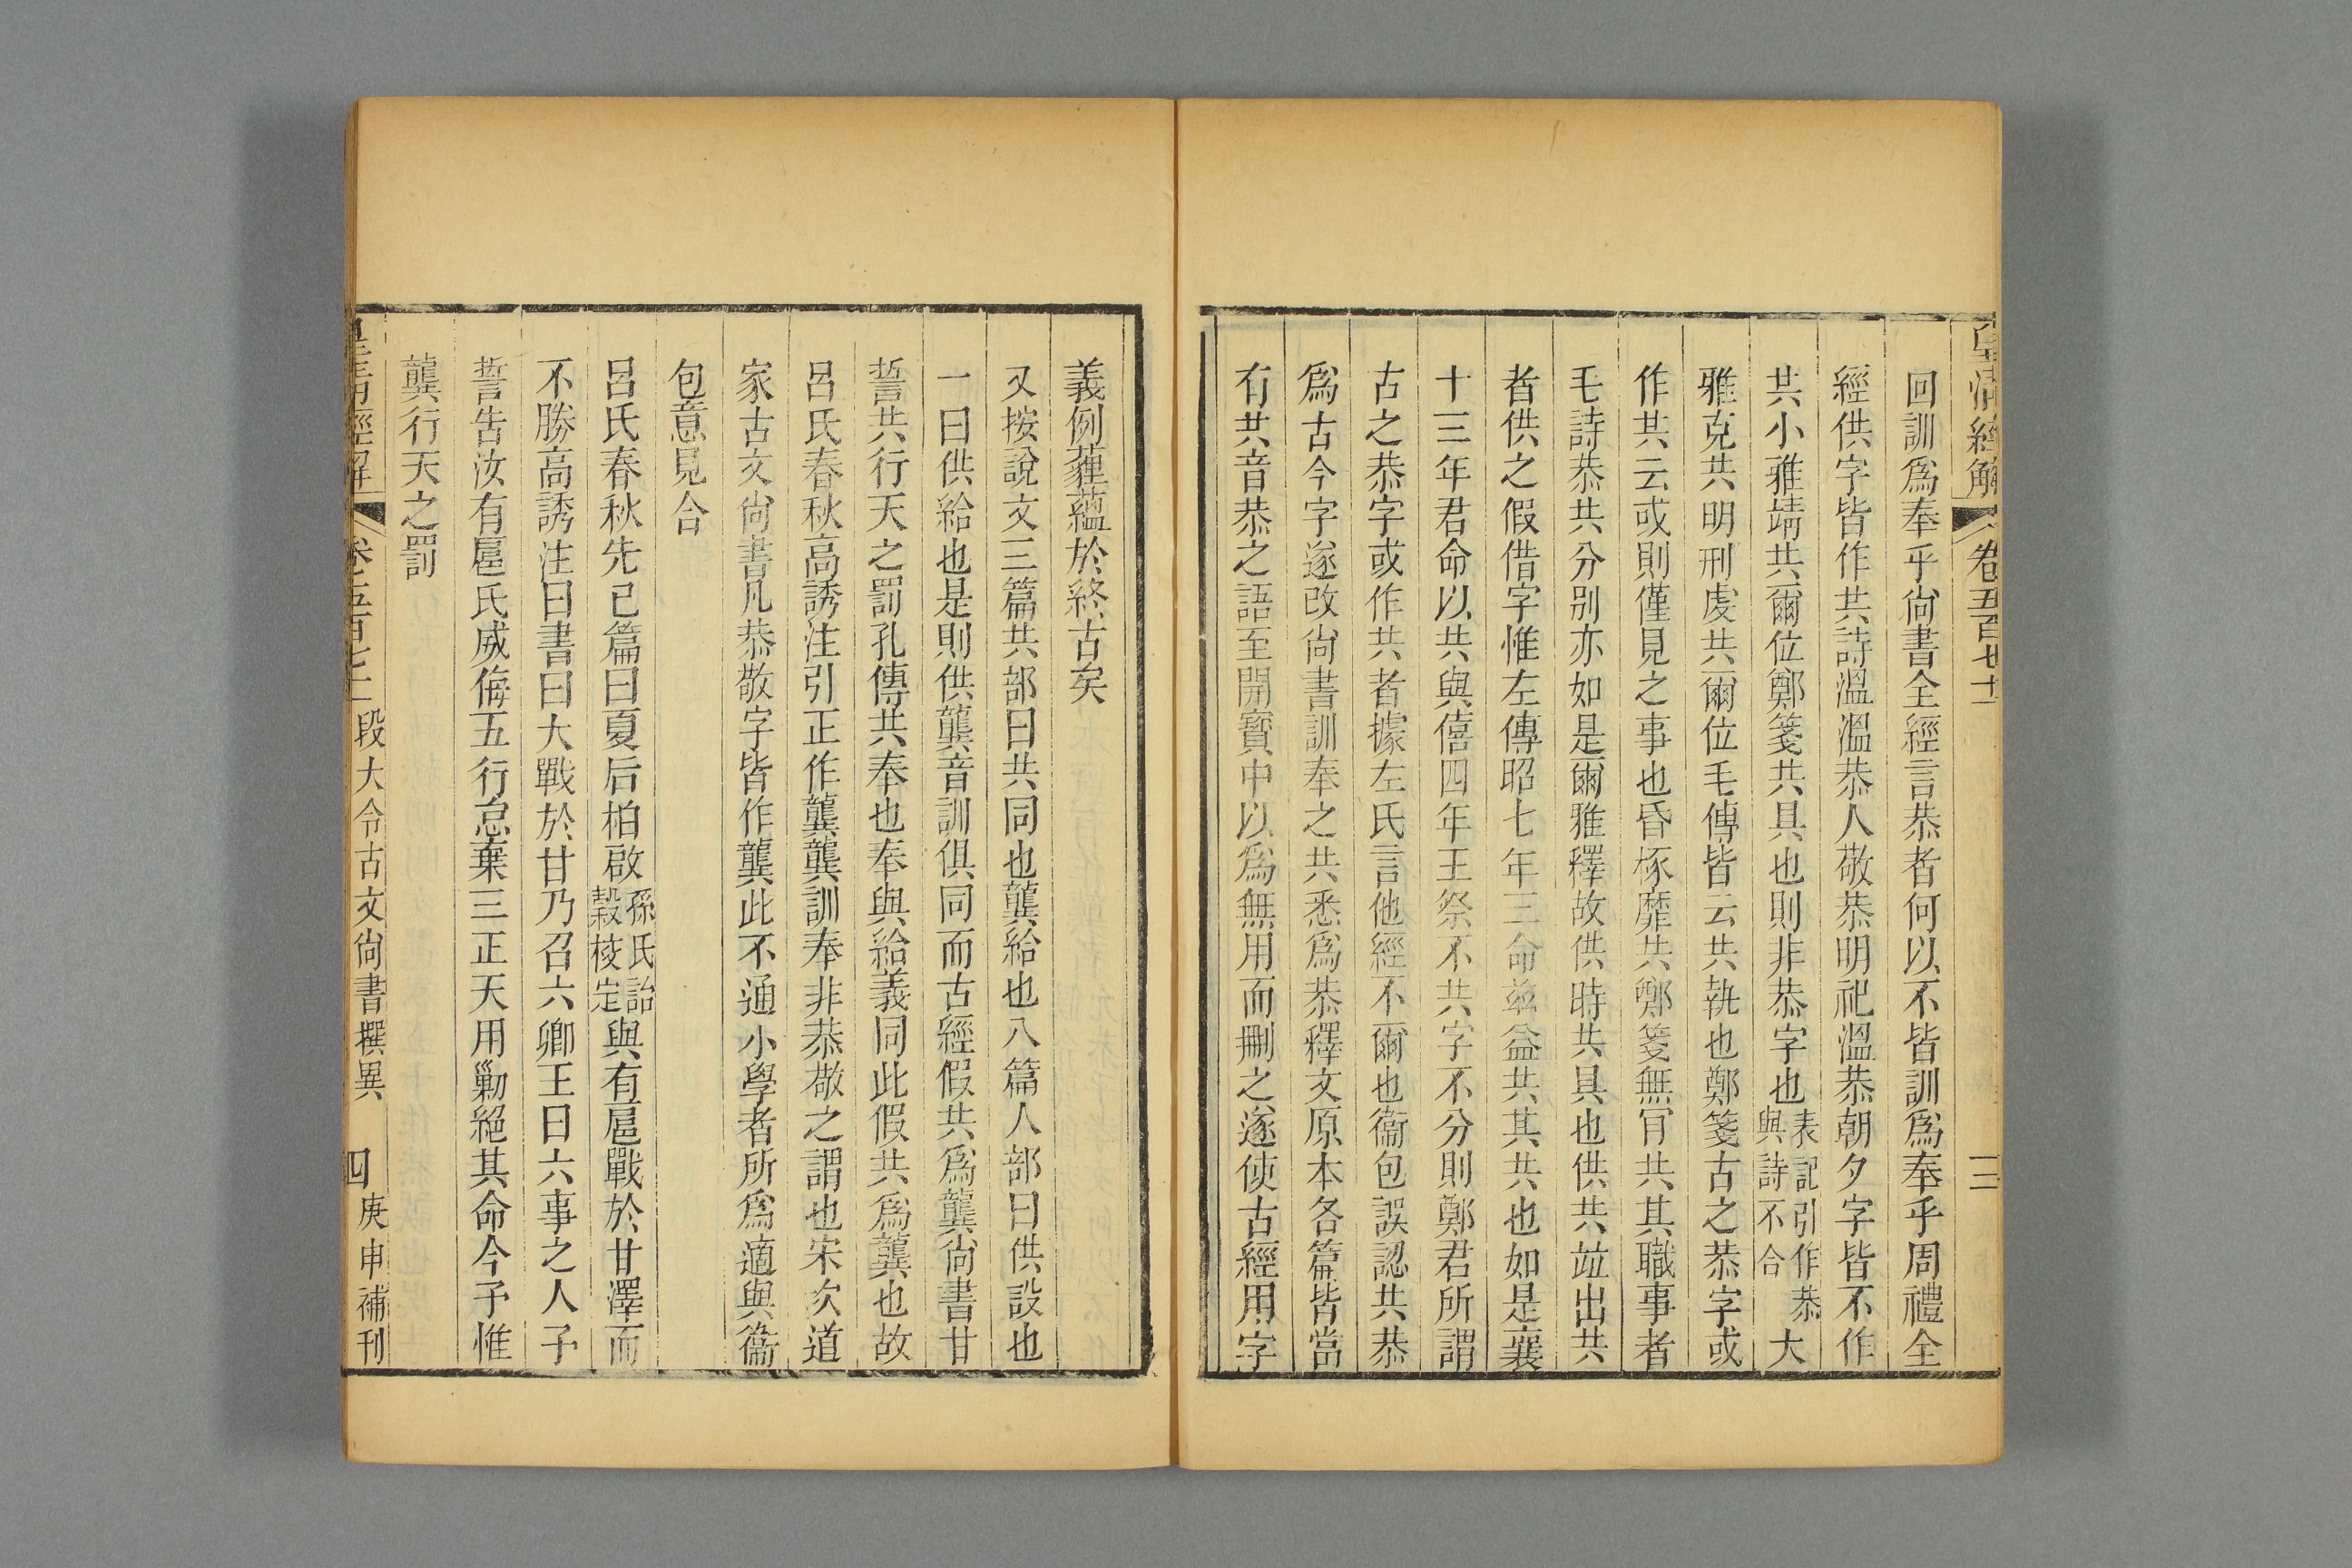 皇清經解 卷五百七十 三
回訓爲奉乎尙書全經言恭者何以不皆訓爲奉乎周禮全
經供字皆作共詩溫溫恭人敬恭明祀溫恭朝夕字皆不作
共小雅靖共爾位鄭箋共具也則非恭字也表記引作恭與詩不合大
雅克共明刑虔共爾位毛傳皆云共執也鄭箋古之恭字或
作共云或則僅見之事也昏椓靡共鄭箋無肎共其職事者
毛詩恭共分別亦如是爾雅釋故供時共具也供共竝出共
者供之假借字惟左傳昭七年三命茲益共其共也如是襄
十三年君命以共與僖四年王祭不共字不分則鄭君所謂
古之恭字或作共者據左氏言他經不爾也衞包誤認共恭
爲古今字遂改尙書訓奉之共悉爲恭釋文原本各篇皆當
有共音恭之語至開寶中以爲無用而刪之遂使古經用字
義例薶蘊於終古矣
又按說文三篇共部曰共同也龔給也八篇人部曰供設也
一曰供給也是則供龔音訓俱同而古經假共爲龔尙書甘
誓共行天之罰孔傳共奉也奉與給義同此假共爲龔也故
呂氏春秋高誘注引正作龔龔訓奉非恭敬之謂也宋次道
家古文尙書凡恭敬字皆作龔此不通小學者所爲適與衞
包意見合
呂氏春秋先己篇曰夏后柏啟孫氏詒穀校定與有扈戰於甘澤而
不勝高誘注曰書曰大戰於甘乃召六卿王曰六事之人予
誓告汝有扈氏威侮五行怠棄三正天用勦絕其命今予惟
龔行天之罰
段大令古文尙書撰異 四 庚申補刊